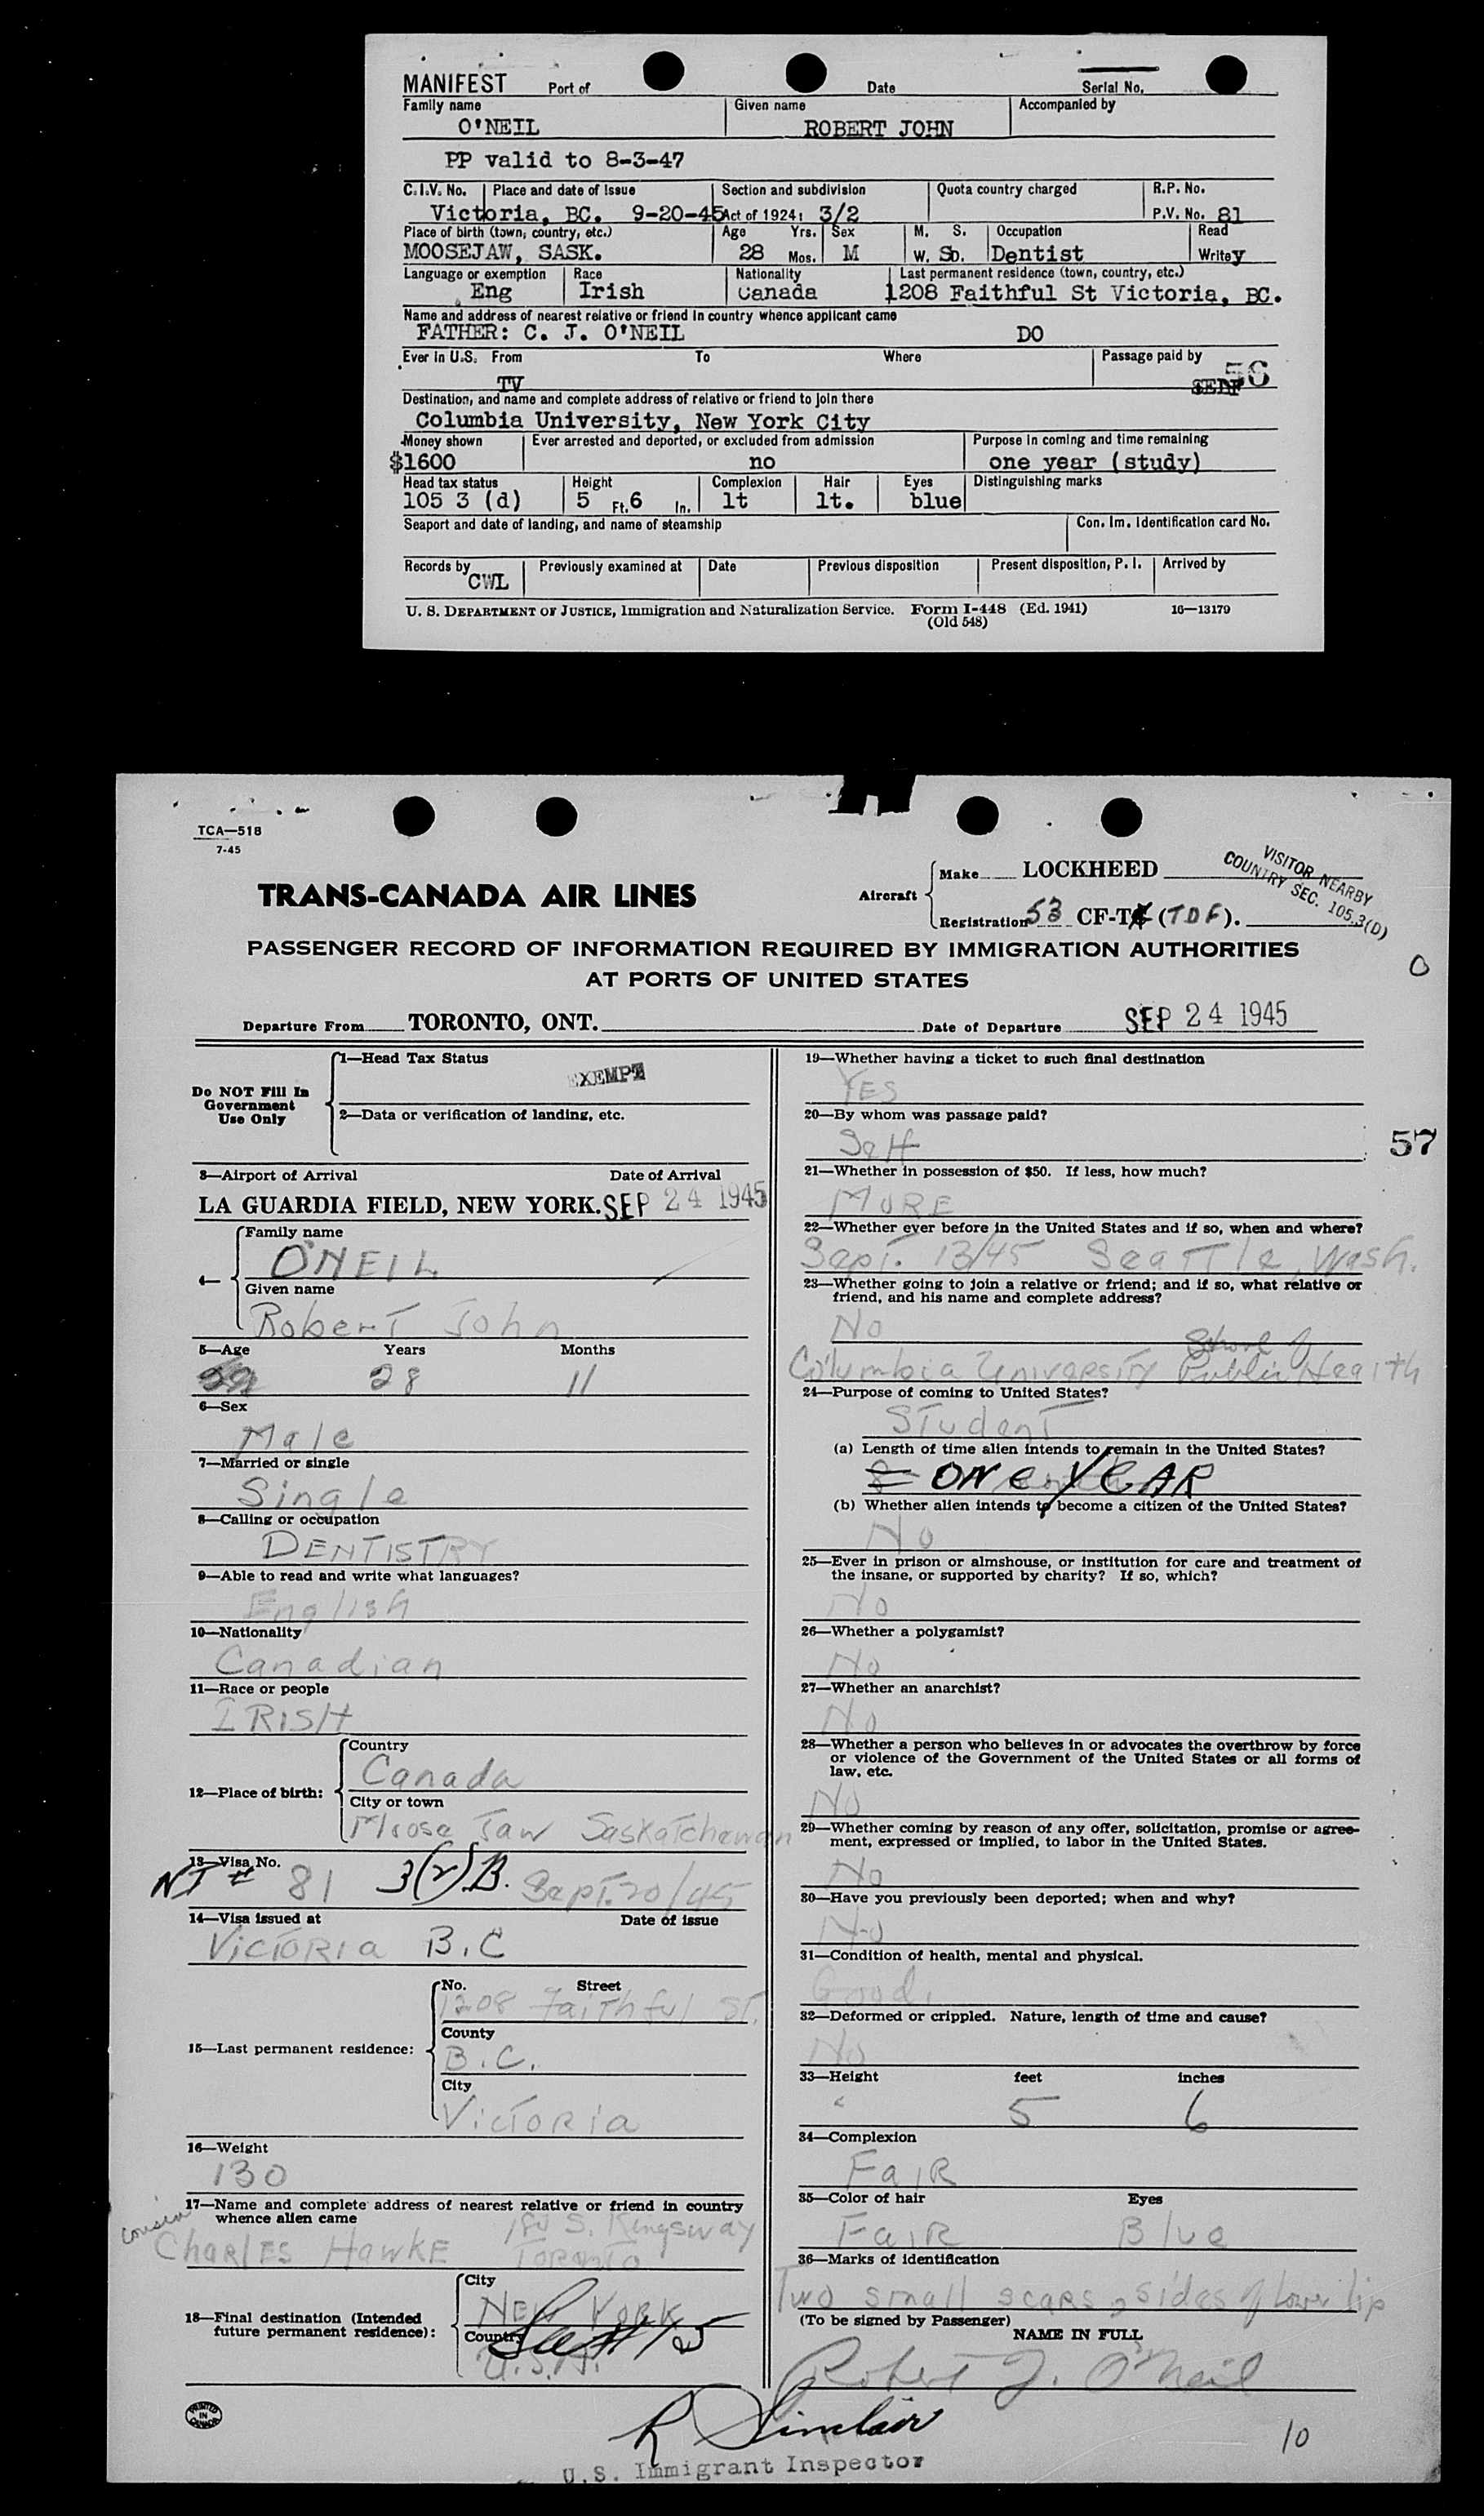 MANIFEST Port of Date Serial No.
Family name Given name Accompanied by
O'NEIL ROBERT JOHN
PP valid to 8-3-47
C.I.V. No. Place and date of issue Section and subdivision Quota country charged R.P. No.
Victoria, BC. 9-20-45 Act of 1924: 3/2 P.V. No. 81
Place of birth (town, country, etc.) Age Yrs. Sex M. S. Occupation Read
MOOSEJAW, SASK. 28 Mos. M W. D. Dentist Write y
Language or exemption Race Nationality Last permanent residence (town, country, etc.)
Eng Irish Canada 1208 Faithful St Victoria, BC.
Name and address of nearest relative or friend in country whence applicant came
FATHER: C. J. O'NEIL DO
Ever in U.S. From To Where Passage paid by
TV SELF 56
Destination, and name and complete address of relative or friend to join there
Columbia University, New York City
Money shown Ever arrested and deported, or excluded from admission Purpose in coming and time remaining
$1600 no one year (study)
Head tax status Height Complexion Hair Eyes Distinguishing marks
105 3 (d) 5 Ft. 6 In. lt lt. blue
Seaport and date of landing, and name of steamship Con. Im. Identification card No.
Records by Previously examined at Date Previous disposition Present disposition, P. I. Arrived by
CWL
U. S. DEPARTMENT OF JUSTICE, Immigration and Naturalization Service. Form I-448 (Ed. 1941) 16—13179
(Old 548)
TCA—518
7-45
TRANS-CANADA AIR LINES
Aircraft Make LOCKHEED
Registration 53 CF-T (TDF).
VISITOR NEARBY
COUNTRY SEC. 105.3(D)
PASSENGER RECORD OF INFORMATION REQUIRED BY IMMIGRATION AUTHORITIES
AT PORTS OF UNITED STATES
0
Departure From TORONTO, ONT. Date of Departure SEP 24 1945
Do NOT Fill In
Government
Use Only
1—Head Tax Status
EXEMPT
2—Data or verification of landing, etc.
3—Airport of Arrival Date of Arrival
LA GUARDIA FIELD, NEW YORK. SEP 24 1945
4—
Family name
O'NEIL
Given name
Robert John
5—Age Years Months
28 11
6—Sex
Male
7—Married or single
Single
8—Calling or occupation
DENTISTRY
9—Able to read and write what languages?
English
10—Nationality
Canadian
11—Race or people
IRISH
12—Place of birth:
Country
Canada
City or town
Moose Jaw Saskatchewan
13—Visa No.
NI # 81 3(2).B. Sept. 20/45
14—Visa issued at Date of issue
Victoria B.C
15—Last permanent residence:
No. Street
1208 Faithful St.
County
B.C.
City
Victoria
16—Weight
130
17—Name and complete address of nearest relative or friend in country
whence alien came
cousin Charles Hawke 180 S. Kingsway
Toronto
18—Final destination (Intended
future permanent residence):
City
New York
Country
U.S.A.
19—Whether having a ticket to such final destination
YES
20—By whom was passage paid?
Self
57
21—Whether in possession of $50. If less, how much?
MORE
22—Whether ever before in the United States and if so, when and where?
Sept. 13/45 Seattle, Wash.
23—Whether going to join a relative or friend; and if so, what relative or
friend, and his name and complete address?
No
School of
Columbia University Public Health
24—Purpose of coming to United States?
Student
(a) Length of time alien intends to remain in the United States?
ONE YEAR
(b) Whether alien intends to become a citizen of the United States?
No
25—Ever in prison or almshouse, or institution for care and treatment of
the insane, or supported by charity? If so, which?
No
26—Whether a polygamist?
No
27—Whether an anarchist?
No
28—Whether a person who believes in or advocates the overthrow by force
or violence of the Government of the United States or all forms of
law, etc.
No
29—Whether coming by reason of any offer, solicitation, promise or agree-
ment, expressed or implied, to labor in the United States.
No
30—Have you previously been deported; when and why?
No
31—Condition of health, mental and physical.
Good.
32—Deformed or crippled. Nature, length of time and cause?
No
33—Height feet inches
5 6
34—Complexion
Fair
35—Color of hair Eyes
Fair Blue
36—Marks of identification
Two small scars, sides of lower lip
(To be signed by Passenger)
NAME IN FULL
Robert J. O'Neil
PRINTED
IN
CANADA
R Sinclair
U.S. Immigrant Inspector
10